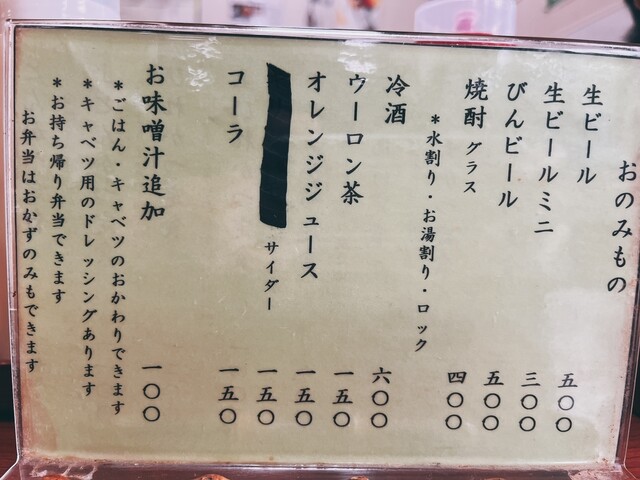 おのみもの
生ビール 五〇〇
生ビールミニ 三〇〇
びんビール 五〇〇
焼酎 グラス 四〇〇
*水割り・お湯割り・ロック
冷酒 六〇〇
ウーロン茶 一五〇
オレンジジュース 一五〇
サイダー 一五〇
コーラ 一五〇
お味噌汁追加 一〇〇
*ごはん・キャベツのおかわりできます
*キャベツ用のドレッシングあります
*お持ち帰り弁当できます
お弁当はおかずのみもできます